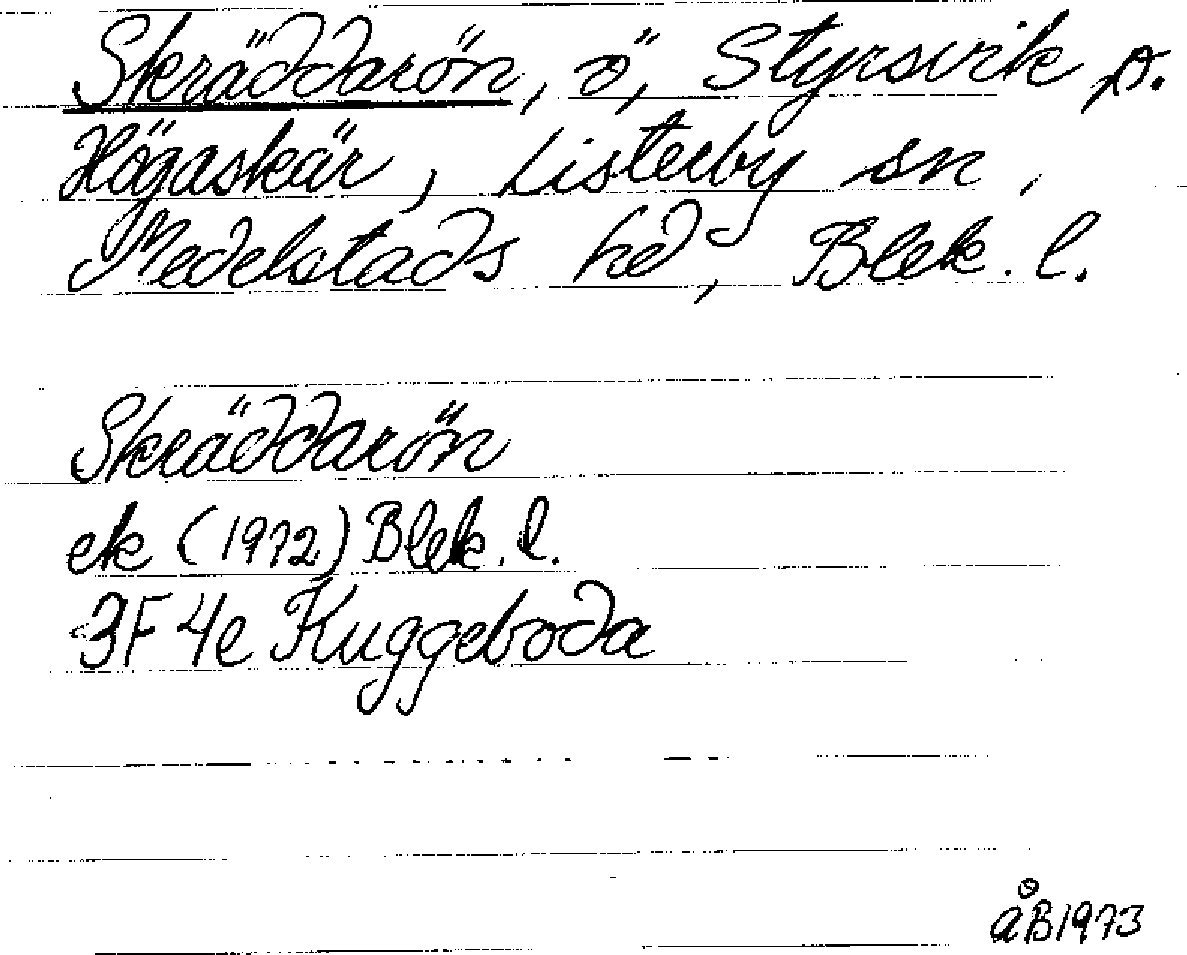 Skräddarön, ö, Styrsvik o.
Högaskär, Listerby sn,
Medelstads hd, Blek. l.
Skräddarön
ek (1972) Blek. l.
3F 4e Kuggeboda
åB 1973